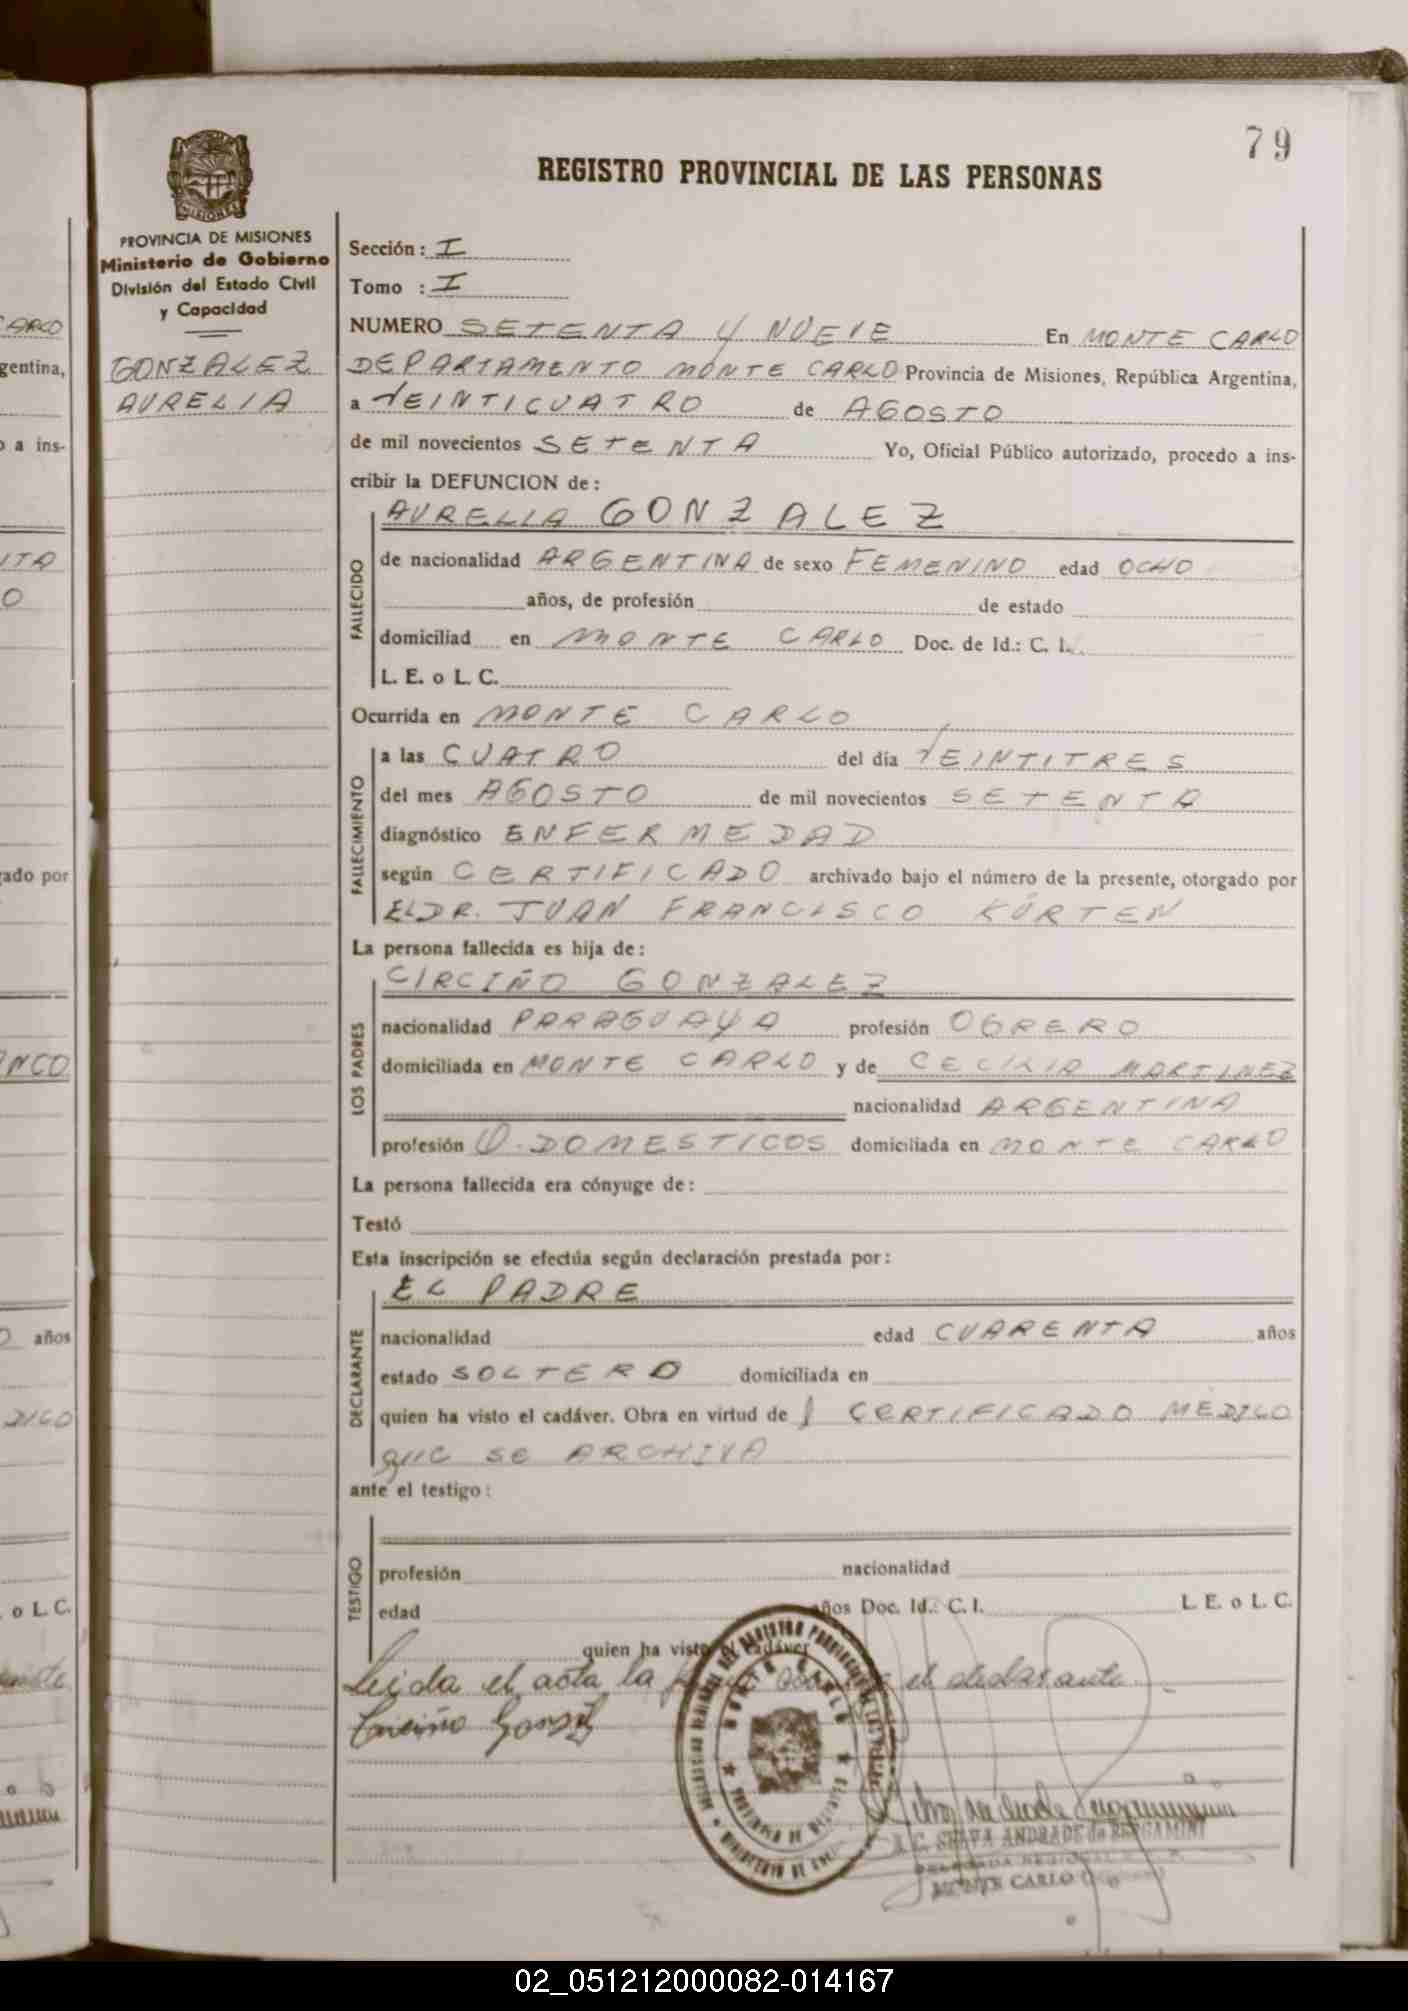 79
REGISTRO PROVINCIAL DE LAS PERSONAS
MISIONES
PROVINCIA DE MISIONES
Ministerio de Gobierno
División del Estado Civil
y Capacidad
GONZALEZ
AURELIA
Sección: I
Tomo : I
NUMERO SETENTA Y NUEVE En MONTE CARLO
DEPARTAMENTO MONTE CARLO Provincia de Misiones, República Argentina,
a VEINTICUATRO de AGOSTO
de mil novecientos SETENTA Yo, Oficial Público autorizado, procedo a ins-
cribir la DEFUNCION de:
FALLECIDO
AURELIA GONZALEZ
de nacionalidad ARGENTINA de sexo FEMENINO edad OCHO
años, de profesión de estado
domiciliad en MONTE CARLO Doc. de Id.: C. I.
L. E. o L. C.
Ocurrida en MONTE CARLO
FALLECIMIENTO
a las CUATRO del día VEINTITRES
del mes AGOSTO de mil novecientos SETENTA
diagnóstico ENFERMEDAD
según CERTIFICADO archivado bajo el número de la presente, otorgado por
EL DR. JUAN FRANCISCO KÜRTEN
La persona fallecida es hija de:
LOS PADRES
CIRCIÑO GONZALEZ
nacionalidad PARAGUAYA profesión OBRERO
domiciliada en MONTE CARLO y de CECILIA MARTINEZ
nacionalidad ARGENTINA
profesión Q. DOMESTICOS domiciliada en MONTE CARLO
La persona fallecida era cónyuge de:
Testó
Esta inscripción se efectúa según declaración prestada por:
DECLARANTE
EL PADRE
nacionalidad edad CUARENTA años
estado SOLTERO domiciliada en
quien ha visto el cadáver. Obra en virtud de 1 CERTIFICADO MEDICO
que SE ARCHIVA
ante el testigo:
TESTIGO
profesión nacionalidad
edad años Doc. Id.: C. I. L. E. o L. C.
quien ha visto el cadáver
Leida el acta la el declarante
Circiño Gonzalez
MONTE CARLO
PROVINCIA DE MISIONES
SELVA ANDRADE de BERGAMINI
MONTE CARLO
ARLO
gentina,
o a ins-
ITA
O
gado por
ANCO
años
DICO
. o L.C.
02_051212000082-014167